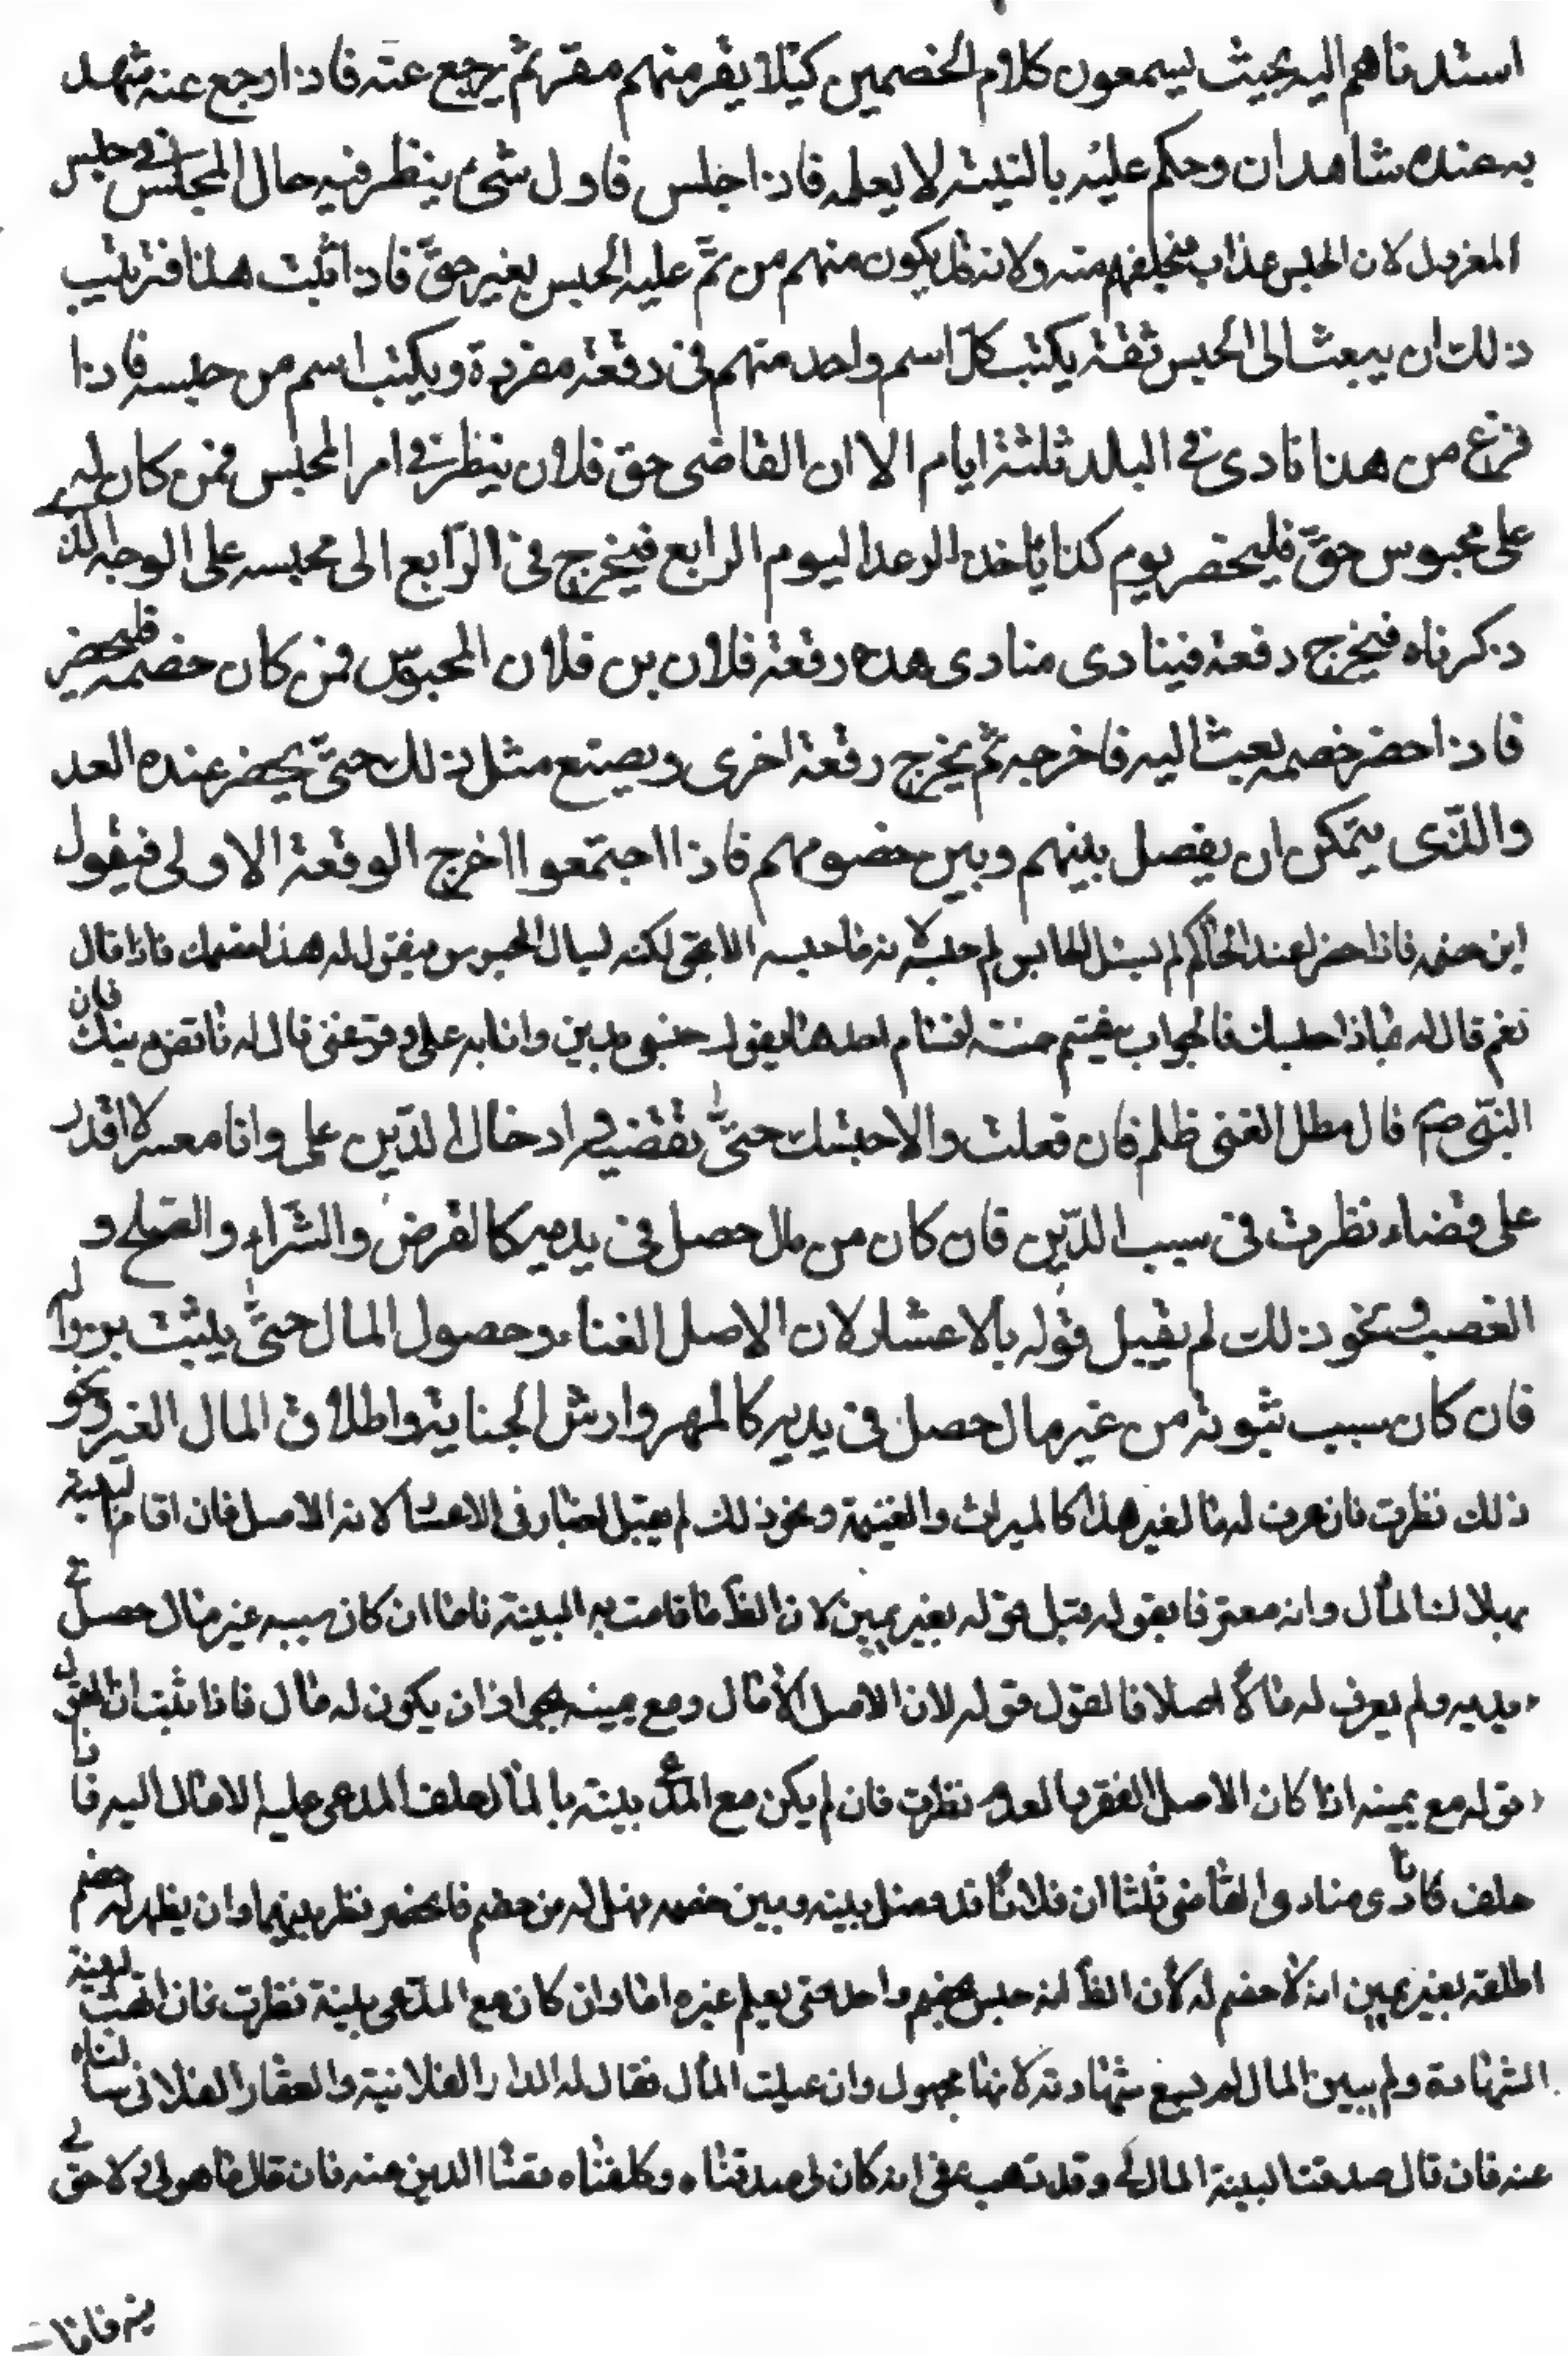 استدناهم اليه بحيث يسمعون كلام الخصمين كيلا يقر منهم مقر ثم يرجع عنه فاذا رجع عنه شهد
به عنده شاهدان وحكم عليه بالبينة لا يعلمه فاذا جلس فاول شئ ينظر فيه حال المحبس في حبس
المعزول لان الحبس عذاب فيخلصهم منه ولانه قد يكون منهم من تم عليه الحبس بغير حق فاذا ثبت هذا فترتيب
ذلك ان يبعث الى الحبس ثقة يكتب كل اسم واحد منهم فى رقعة مفردة ويكتب اسم من حبسه فاذا
فرغ من هذا نادى فى البلد ثلثة ايام الا ان القاضى حق فلان ينظر فى امر المحبس فمن كان له
على محبوس حق فليحضر يوم كذا ياخذ الوعد اليوم الرابع فيخرج فى الرابع الى محبسه على الوجه الذى
ذكرناه فيخرج رقعة فينادى منادى هذه رقعة فلان بن فلان المحبوس فمن كان خصمه فليحضر
فاذا حضر خصمه بعث اليه فاخرجه ثم يخرج رقعة اخرى ويصنع مثل ذلك حتى يحضر عنده العد
والذى يتمكن ان يفصل بينهم وبين خصومهم فاذا اجتمعوا اخرج الرقعة الاولى فيقول
اين خصمه فاذا حضر عند الحاكم لم يسئل الحابس لم حبسه لانه ما حبسه الا بحق لكنه يسال المحبوس فيقول له هذا خصمك فاذا قال
نعم قال له بماذا حبسك فالجواب ينقسم خمسة اقسام احدها يقول حبسنى بدين وانا به على وقوعنى قال له فاقض دينك فان
النبى صم قال مطل الغنى ظلم فان فعلت والا حبستك حتى تقضيه اذ خال الدين على وانا معسر لا اقدر
على قضاء نظرت فى سبب الدين فان كان من مال حصل فى يديه كالقرض والشراء والصلح و
الغصب ونحو ذلك لم يقبل قوله بالاعسار لان الاصل الغناء وحصول المال حتى يثبت زواله
فان كان سبب ثبوته من غير مال حصل فى يديه كالمهر وارش الجناية واطلاق المال الغير ونحو
ذلك نظرت فان عرف له مال غير هذا كالميراث والغنيمة ونحو ذلك لم يقبل فى الاعسار لانه الاصل فان اقام البينة
بهلاك المال وانه معسر فا بقوله يقبل قوله بغير يمين لان الظ ما قامت به البينة فاما ان كان سببه غير مال حصل فى
يديه ولم يعرف له مال اصلا فالقول قوله لان الاصل لا مال ومع يمينه لجواز ان يكون له مال فاذا ثبت ان القول
قوله مع يمينه اذا كان الاصل الفقر بالعدم نظرت فان لم يكن مع المدعى بينة بالمال حلف المدعى عليه لا مال اليه فا
حلف نادى منادى القاضى ثلثا ان فلانا قد فصل بينه وبين خصمه فهل له من خصم فان حضر نظر بينهما وان لم يظهر له خصم
اطلقه بغير يمين انه لا خصم له لان الظ انه حبس بخصم واحد حتى يعلم غيره اما وان كان مع المدعى بينة نظرت فان اتت البينة
الشهادة ولم يبين المال لم يسمع شهادته لانها مجهول وان عينت المال فقال له الدار الفلانية والعقار الفلانى سالناه
عنه فان قال صدقت البينة المال لى وقد تعب عنى انه كان لى صدقناه وكلفناه قضاء الدين منه فان قال ما هو لى لا حق لى
فيه فاما